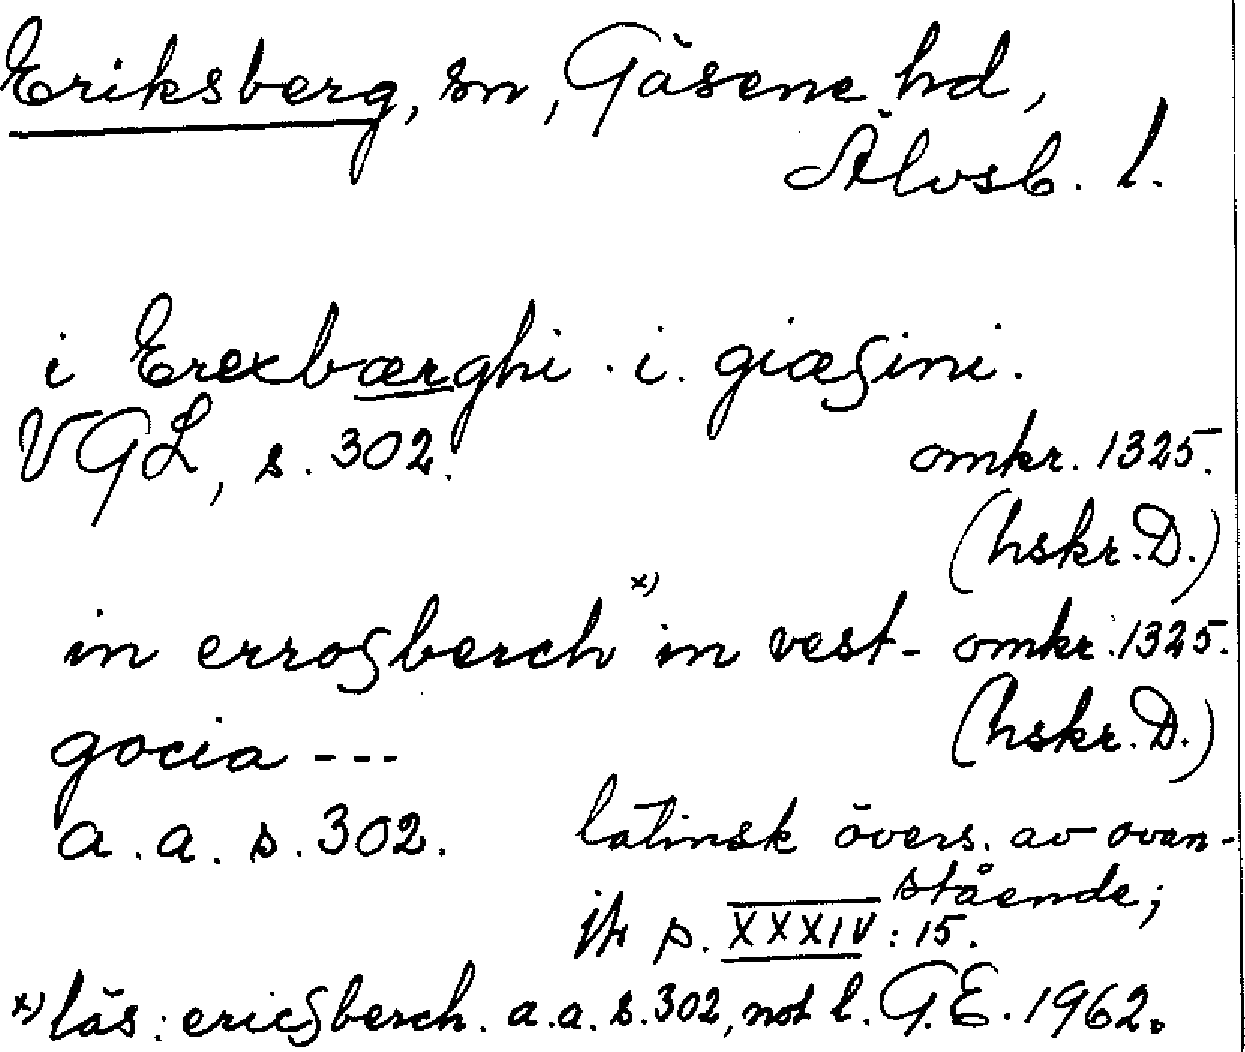 Eriksberg, sn, Gäsene hd,
Älvsb. l.
i Erexbærghi . i. giæſini.
VGL, s. 302. omkr. 1325.
(hskr. D.)
in erroſberch x) in vest- omkr. 1325.
gocia --- (hskr. D.)
a. a. s. 302. latinsk övers. av ovan-
stående;
jfr p. XXXIV : 15.
x) läs: ericſberch. a.a. s. 302, not l. G.E. 1962.